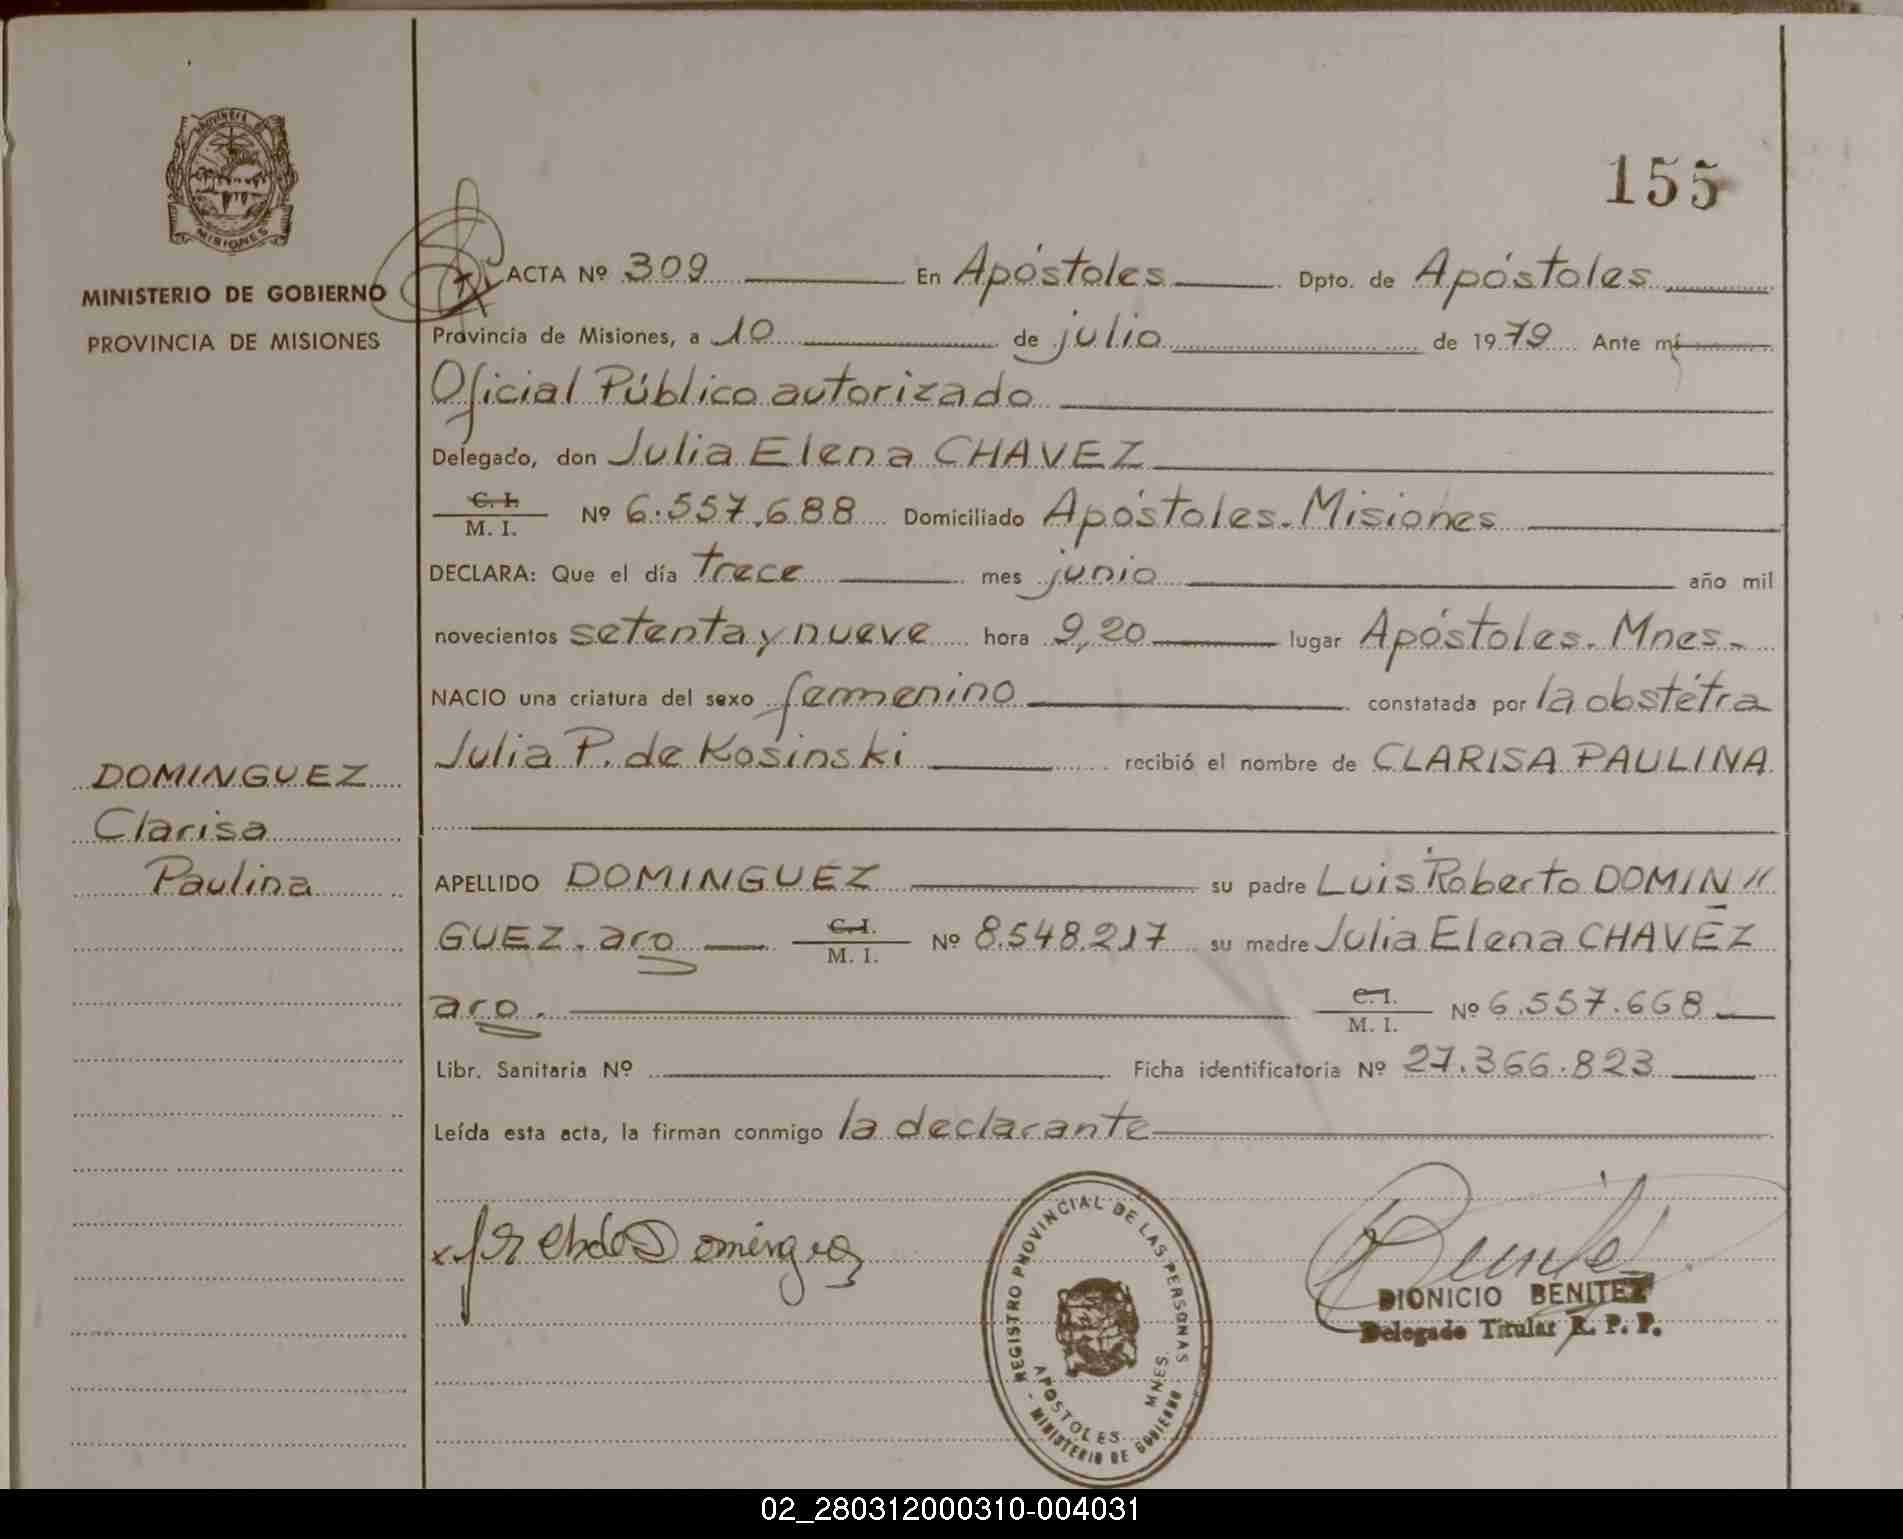 155
PROVINCIA DE
MISIONES
MINISTERIO DE GOBIERNO
PROVINCIA DE MISIONES
ACTA Nº 309 En Apóstoles Dpto. de Apóstoles
Provincia de Misiones, a 10 de julio de 1979 Ante mí
Oficial Público autorizado
Delegado, don Julia Elena CHAVEZ
C. I.
M. I. Nº 6.557.688 Domiciliado Apóstoles. Misiones
DECLARA: Que el día trece mes junio año mil
novecientos setenta y nueve hora 9,20 lugar Apóstoles. Mnes.
NACIO una criatura del sexo femenino constatada por la obstétra
Julia P. de Kosinski recibió el nombre de CLARISA PAULINA
DOMINGUEZ
Clarisa
Paulina
APELLIDO DOMINGUEZ su padre Luis Roberto DOMIN
GUEZ. aro C. I. M. I. Nº 8.548.217 su madre Julia Elena CHAVEZ
aro. C. I. M. I. Nº 6.557.668
Libr. Sanitaria Nº Ficha identificatoria Nº 27.366.823
Leída esta acta, la firman conmigo la declarante
REGISTRO PROVINCIAL DE LAS PERSONAS
APOSTOLES MNES.
- MINISTERIO DE GOBIERNO
DIONICIO BENITEZ
Delegado Titular R. P. P.
02_280312000310-004031